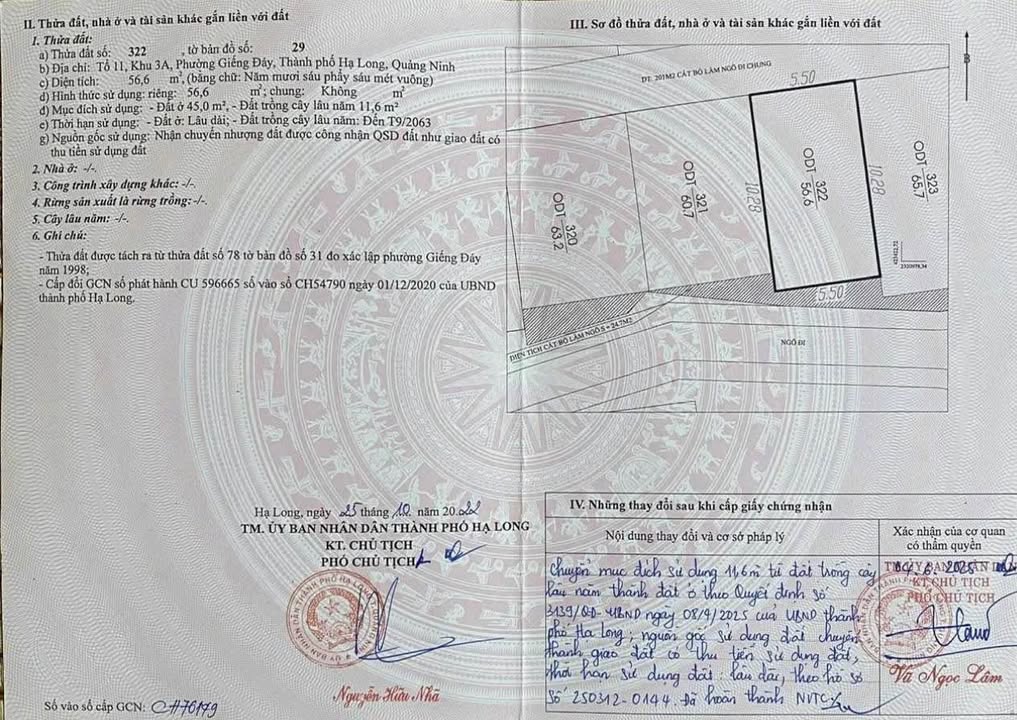 II. Thửa đất, nhà ở và tài sản khác gắn liền với đất
1. Thửa đất:
a) Thửa đất số: 322 , tờ bản đồ số: 29
b) Địa chỉ: Tổ 11, Khu 3A, Phường Giếng Đáy, Thành phố Hạ Long, Quảng Ninh
c) Diện tích: 56,6 m², (bằng chữ: Năm mươi sáu phẩy sáu mét vuông)
d) Hình thức sử dụng: riêng: 56,6 m²; chung: Không m²
đ) Mục đích sử dụng: - Đất ở 45,0 m², - Đất trồng cây lâu năm 11,6 m²
e) Thời hạn sử dụng: - Đất ở: Lâu dài; - Đất trồng cây lâu năm: Đến T9/2063
g) Nguồn gốc sử dụng: Nhận chuyển nhượng đất được công nhận QSD đất như giao đất có
thu tiền sử dụng đất
2. Nhà ở: -/-.
3. Công trình xây dựng khác: -/-.
4. Rừng sản xuất là rừng trồng:-/-.
5. Cây lâu năm: -/-.
6. Ghi chú:
- Thửa đất được tách ra từ thửa đất số 78 tờ bản đồ số 31 do xác lập phường Giếng Đáy
năm 1998;
- Cấp đổi GCN số phát hành CU 596665 số vào sổ CH54790 ngày 01/12/2020 của UBND
thành phố Hạ Long.
Hạ Long, ngày 25 tháng 10 năm 2022
TM. ỦY BAN NHÂN DÂN THÀNH PHỐ HẠ LONG
KT. CHỦ TỊCH
PHÓ CHỦ TỊCH
Nguyễn Hữu Nhã
Số vào sổ cấp GCN: CH76179
III. Sơ đồ thửa đất, nhà ở và tài sản khác gắn liền với đất
B
DT. 201M2 CẮT BỎ LÀM NGÕ ĐI CHUNG
5.50
ODT 320 63.2
ODT 321 60.7
10.28
ODT 322 56.6
10.28
ODT 323 65.7
2320978.34
5.50
DIỆN TÍCH CẮT BỎ LÀM NGÕ S = 24.7M2
NGÕ ĐI
IV. Những thay đổi sau khi cấp giấy chứng nhận
Nội dung thay đổi và cơ sở pháp lý
Xác nhận của cơ quan
có thẩm quyền
chuyển mục đích sử dụng 11,6m² từ đất trồng cây
lâu năm thành đất ở theo Quyết định số
3139/QĐ-UBND ngày 08/4/2025 của UBND thành
phố Hạ Long; nguồn gốc sử dụng đất chuyển
thành giao đất có thu tiền sử dụng đất,
thời hạn sử dụng đất: lâu dài, theo hồ sơ
số 250312-0144. Đã hoàn thành NVTC
KT. CHỦ TỊCH
PHÓ CHỦ TỊCH
Vũ Ngọc Lâm